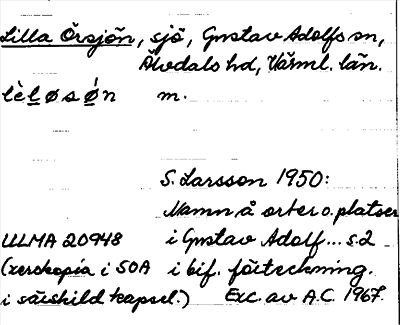 Lilla Örsjön, sjö, Gustav Adolfs sn,
Älvdals hd, Värml. län.
lèl øsø̀n m.
S. Larsson 1950:
Namn å orter o. platser
ULMA 20948 i Gustav Adolf... s.2
(xerokopia i SOA i bif. förteckning.
i särskild kapsel.) Exc. av A.C. 1967.